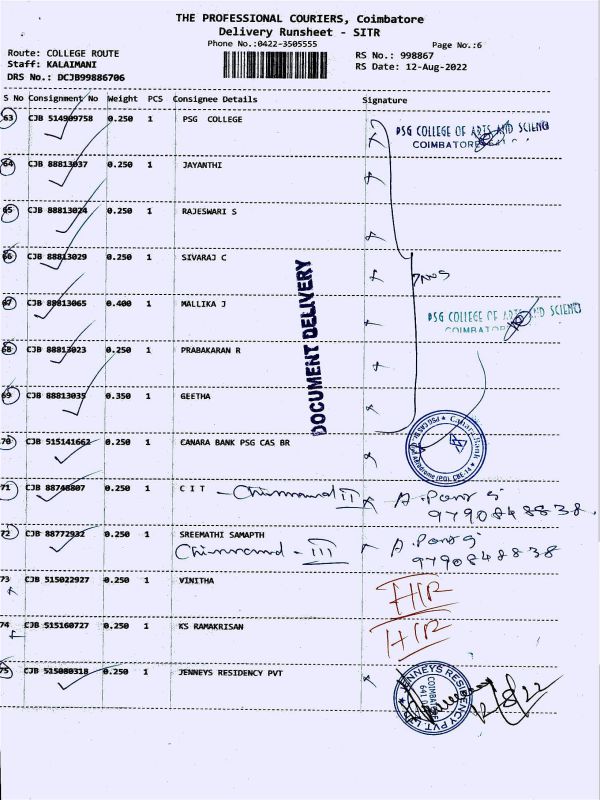 THE PROFESSIONAL COURIERS, Coimbatore
Delivery Runsheet - SITR
Phone No.:0422-3505555
Page No.:6
Route: COLLEGE ROUTE
Staff: KALAIMANI
DRS No.: DCJB99886706
RS No.: 998867
RS Date: 12-Aug-2022
S No Consignment No Weight PCS Consignee Details Signature
63 CJB 514909758 0.250 1 PSG COLLEGE
PSG COLLEGE OF ARTS AND SCIENCE
COIMBATORE
64 CJB 88813037 0.250 1 JAYANTHI
65 CJB 88813024 0.250 1 RAJESWARI S
66 CJB 88813029 0.250 1 SIVARAJ C
67 CJB 88813065 0.400 1 MALLIKA J
PSG COLLEGE OF ARTS AND SCIENCE
COIMBATORE
68 CJB 88813023 0.250 1 PRABAKARAN R
69 CJB 88813035 0.350 1 GEETHA
DOCUMENT DELIVERY
70 CJB 515141662 0.250 1 CANARA BANK PSG CAS BR
Canara Bank
71 CJB 88748807 0.250 1 C I T
9790848838
72 CJB 88772932 0.250 1 SREEMATHI SAMAPTH
III
9790848838
73 CJB 515022927 0.250 1 VINITHA
74 CJB 515160727 0.250 1 KS RAMAKRISAN
75 CJB 515080318 0.250 1 JENNEYS RESIDENCY PVT
JENNEYS RESIDENCY PVT. LTD.